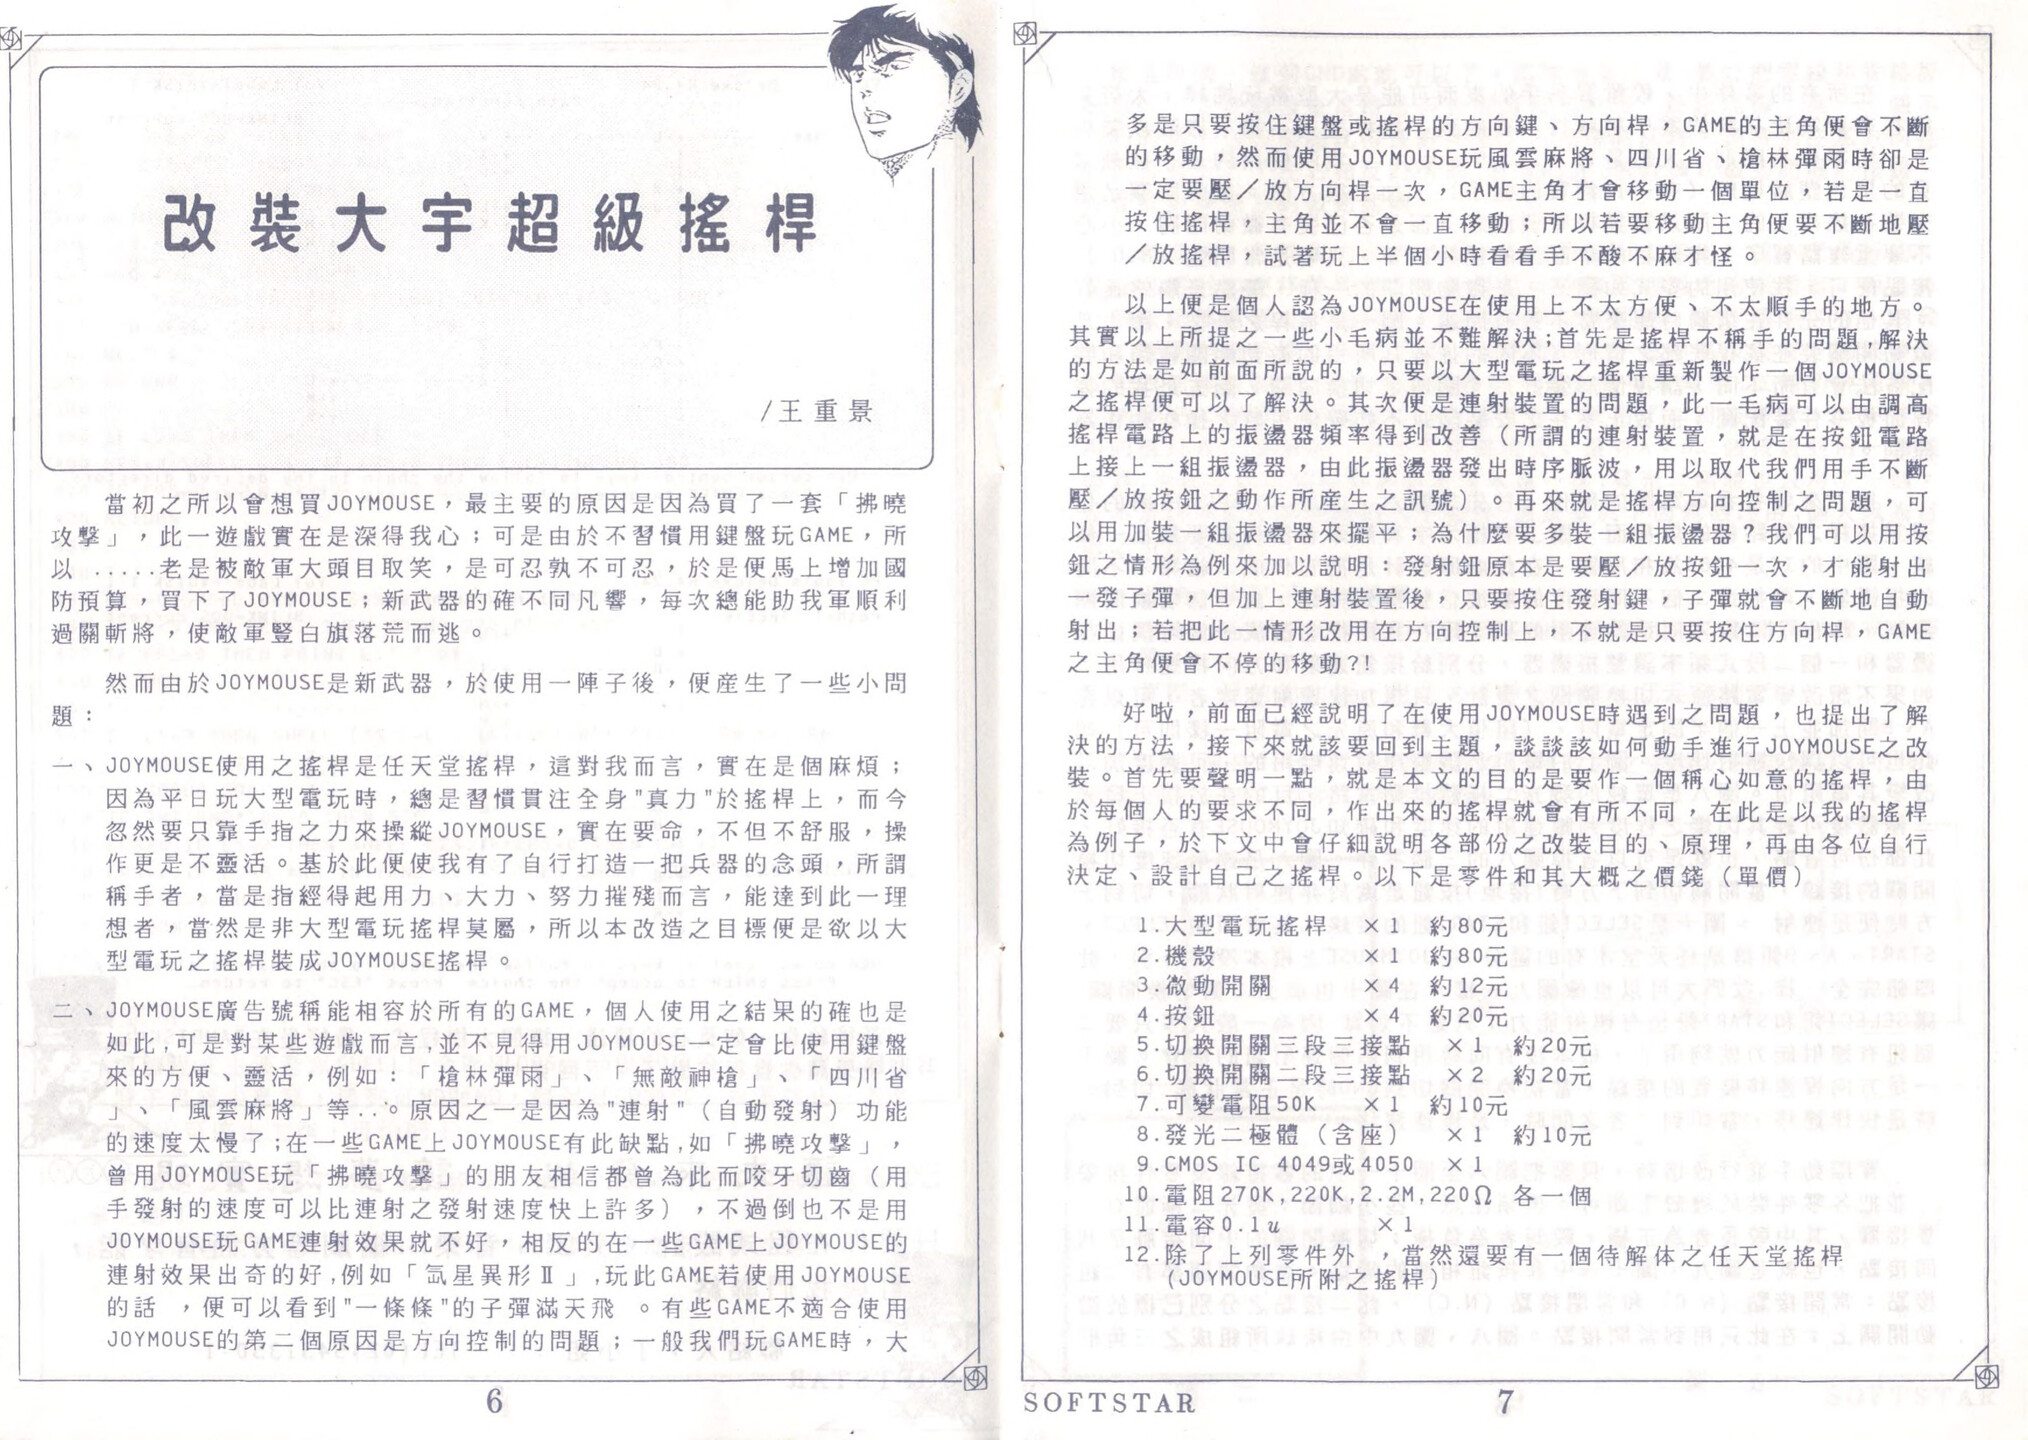 改裝大宇超級搖桿
/王重景
當初之所以會想買JOYMOUSE，最主要的原因是因為買了一套「拂曉
攻擊」，此一遊戲實在是深得我心；可是由於不習慣用鍵盤玩GAME，所
以......老是被敵軍大頭目取笑，是可忍孰不可忍，於是便馬上增加國
防預算，買下了JOYMOUSE；新武器的確不同凡響，每次總能助我軍順利
過關斬將，使敵軍豎白旗落荒而逃。
然而由於JOYMOUSE是新武器，於使用一陣子後，便産生了一些小問
題：
一、JOYMOUSE使用之搖桿是任天堂搖桿，這對我而言，實在是個麻煩；
因為平日玩大型電玩時，總是習慣貫注全身"真力"於搖桿上，而今
忽然要只靠手指之力來操縱JOYMOUSE，實在要命，不但不舒服，操
作更是不靈活。基於此便使我有了自行打造一把兵器的念頭，所謂
稱手者，當是指經得起用力、大力、努力摧殘而言，能達到此一理
想者，當然是非大型電玩搖桿莫屬，所以本改造之目標便是欲以大
型電玩之搖桿裝成JOYMOUSE搖桿。
二、JOYMOUSE廣告號稱能相容於所有的GAME，個人使用之結果的確也是
如此，可是對某些遊戲而言，並不見得用JOYMOUSE一定會比使用鍵盤
來的方便、靈活，例如：「槍林彈雨」、「無敵神槍」、「四川省
」、「風雲麻將」等...。原因之一是因為"連射"（自動發射）功能
的速度太慢了；在一些GAME上JOYMOUSE有此缺點，如「拂曉攻擊」，
曾用JOYMOUSE玩「拂曉攻擊」的朋友相信都曾為此而咬牙切齒（用
手發射的速度可以比連射之發射速度快上許多），不過倒也不是用
JOYMOUSE玩GAME連射效果就不好，相反的在一些GAME上JOYMOUSE的
連射效果出奇的好，例如「氙星異形Ⅱ」，玩此GAME若使用JOYMOUSE
的話，便可以看到"一條條"的子彈滿天飛。有些GAME不適合使用
JOYMOUSE的第二個原因是方向控制的問題；一般我們玩GAME時，大
6
多是只要按住鍵盤或搖桿的方向鍵、方向桿，GAME的主角便會不斷
的移動，然而使用JOYMOUSE玩風雲麻將、四川省、槍林彈雨時卻是
一定要壓／放方向桿一次，GAME主角才會移動一個單位，若是一直
按住搖桿，主角並不會一直移動；所以若要移動主角便要不斷地壓
／放搖桿，試著玩上半個小時看看手不酸不麻才怪。
以上便是個人認為JOYMOUSE在使用上不太方便、不太順手的地方。
其實以上所提之一些小毛病並不難解決；首先是搖桿不稱手的問題，解決
的方法是如前面所說的，只要以大型電玩之搖桿重新製作一個JOYMOUSE
之搖桿便可以了解決。其次便是連射裝置的問題，此一毛病可以由調高
搖桿電路上的振盪器頻率得到改善（所謂的連射裝置，就是在按鈕電路
上接上一組振盪器，由此振盪器發出時序脈波，用以取代我們用手不斷
壓／放按鈕之動作所産生之訊號）。再來就是搖桿方向控制之問題，可
以用加裝一組振盪器來擺平；為什麼要多裝一組振盪器？我們可以用按
鈕之情形為例來加以說明：發射鈕原本是要壓／放按鈕一次，才能射出
一發子彈，但加上連射裝置後，只要按住發射鍵，子彈就會不斷地自動
射出；若把此一情形改用在方向控制上，不就是只要按住方向桿，GAME
之主角便會不停的移動?!
好啦，前面已經說明了在使用JOYMOUSE時遇到之問題，也提出了解
決的方法，接下來就該要回到主題，談談該如何動手進行JOYMOUSE之改
裝。首先要聲明一點，就是本文的目的是要作一個稱心如意的搖桿，由
於每個人的要求不同，作出來的搖桿就會有所不同，在此是以我的搖桿
為例子，於下文中會仔細說明各部份之改裝目的、原理，再由各位自行
決定、設計自己之搖桿。以下是零件和其大概之價錢（單價）
1.大型電玩搖桿 ×1 約80元
2.機殼 ×1 約80元
3.微動開關 ×4 約12元
4.按鈕 ×4 約20元
5.切換開關三段三接點 ×1 約20元
6.切換開關二段三接點 ×2 約20元
7.可變電阻50K ×1 約10元
8.發光二極體（含座） ×1 約10元
9.CMOS IC 4049或4050 ×1
10.電阻270K,220K,2.2M,220Ω 各一個
11.電容0.1u ×1
12.除了上列零件外，當然還要有一個待解体之任天堂搖桿
(JOYMOUSE所附之搖桿)
SOFTSTAR
7